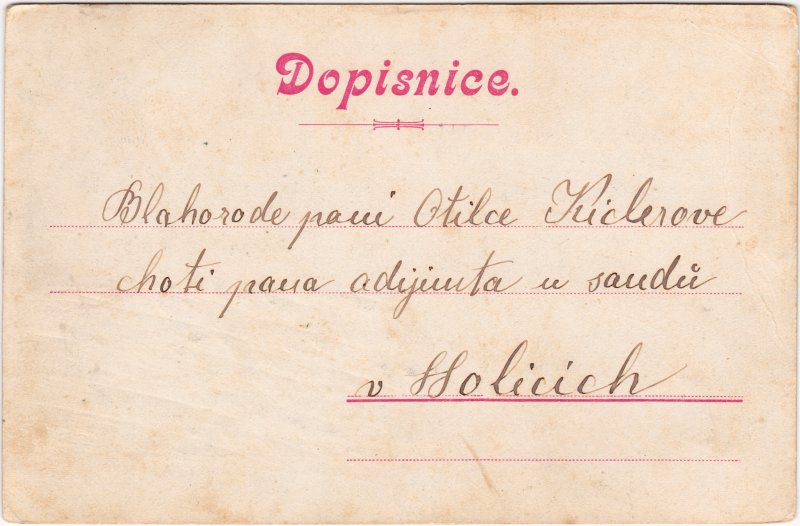 Dopisnice.
Blahorode paní Otilce Kiclerove
choti pana adijunta u saudů
v Holicích